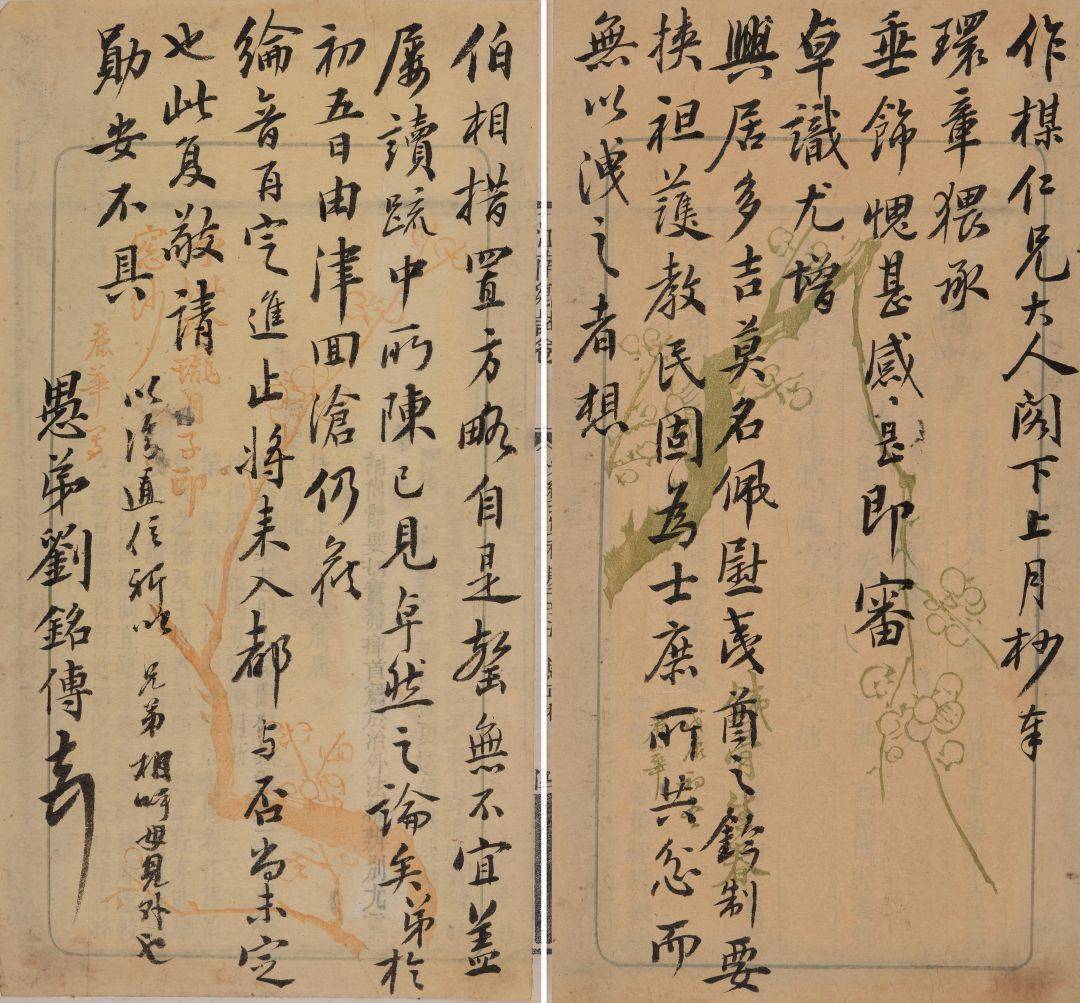 作楳仁兄大人閣下上月杪奉
環章猥承
垂飾愧甚感〻即審
卓識尤增
興居多吉莫名佩尉夷酋之鈐制要
挾袒護教民固為士庶所共忿而
無以洩之者想
伯相措置方略自是罄無不宜蓋
屢讀疏中所陳已見卓然之論矣弟於
初五日由津回滄仍候
綸音再定進止將来入都与否尚未定
也此复敬請
勛安不具
愚弟劉銘傳
以後通信祈以兄弟相呼毋見外也